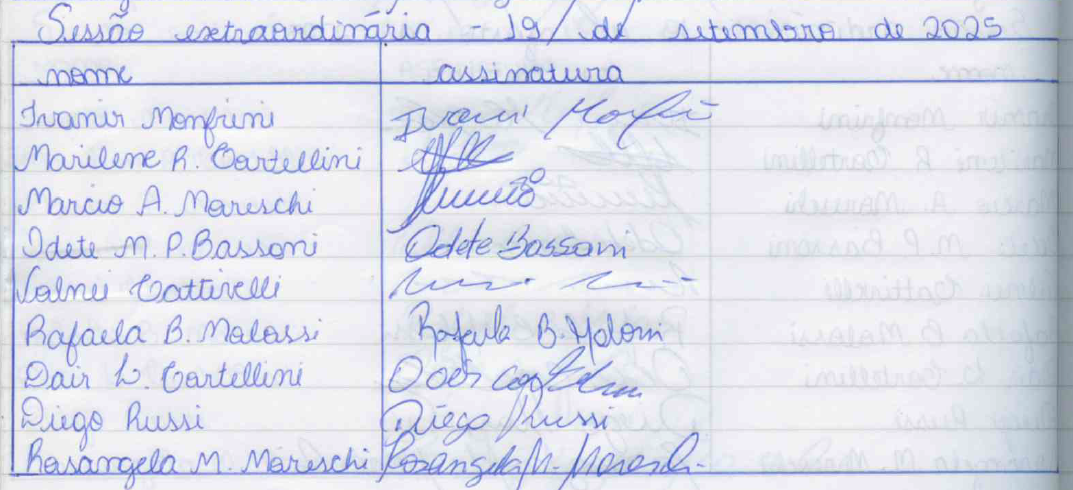 Sessão extraordinária 19/ de setembro de 2025
nome assinatura
Ivanir Monfrini
Marilene R. Cartellini
Marcio A. Mareschi
Odete M. P. Bassoni Odete Bassoni
Valnei Cattivelli
Rafaela B. Malossi Rafaela B. Malossi
Dair L. Cartellini Odair
Diego Russi Diego Russi
Rosangela M. Mareschi Rosangela M. Mareschi